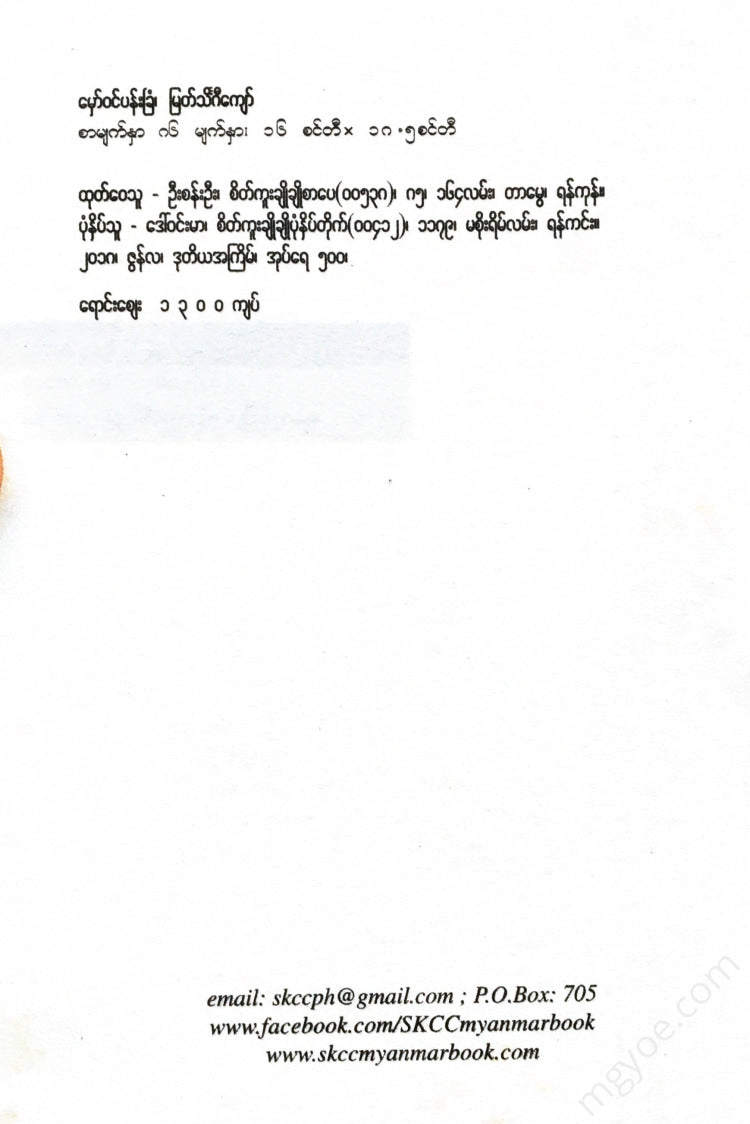 မှော်ဝင်ပန်းခြံ၊ မြတ်သိင်္ဂီကျော်
စာမျက်နှာ ၈၆ မျက်နှာ၊ ၁၆ စင်တီ × ၁၈.၅စင်တီ
ထုတ်ဝေသူ - ဦးစန်းဦး၊ စိတ်ကူးချိုချိုစာပေ(၀၀၅၃၈)၊ ၈၅၊ ၁၆၄လမ်း၊ တာမွေ၊ ရန်ကုန်။
ပုံနှိပ်သူ - ဒေါ်ဝင်းမာ၊ စိတ်ကူးချိုချိုပုံနှိပ်တိုက်(၀၀၄၁၂)၊ ၁၁၇၉၊ မစိုးရိမ်လမ်း၊ ရန်ကင်း။
၂၀၁၈၊ ဇွန်လ၊ ဒုတိယအကြိမ်၊ အုပ်ရေ ၅၀၀၊
ရောင်းဈေး ၁ ၃ ၀ ၀ ကျပ်
email: skccph@gmail.com ; P.O.Box: 705
www.facebook.com/SKCCmyanmarbook
www.skccmyanmarbook.com
mgyoe.com